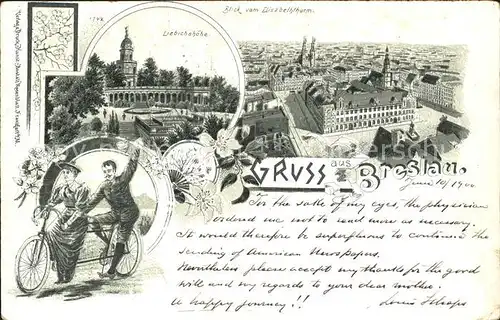 Blick vom Elisabethturm.
Liebichshöhe
Gruss aus Breslau.
June 10/1900
For the sake of my eyes, the physician
ordered me not to read more as necessary.
It would therefore be superfluous to continue the
sending of American Newspapers.
Nevertheless please accept my thanks for the good
will and my regards to your dear mother.
A happy journey!!
Louis